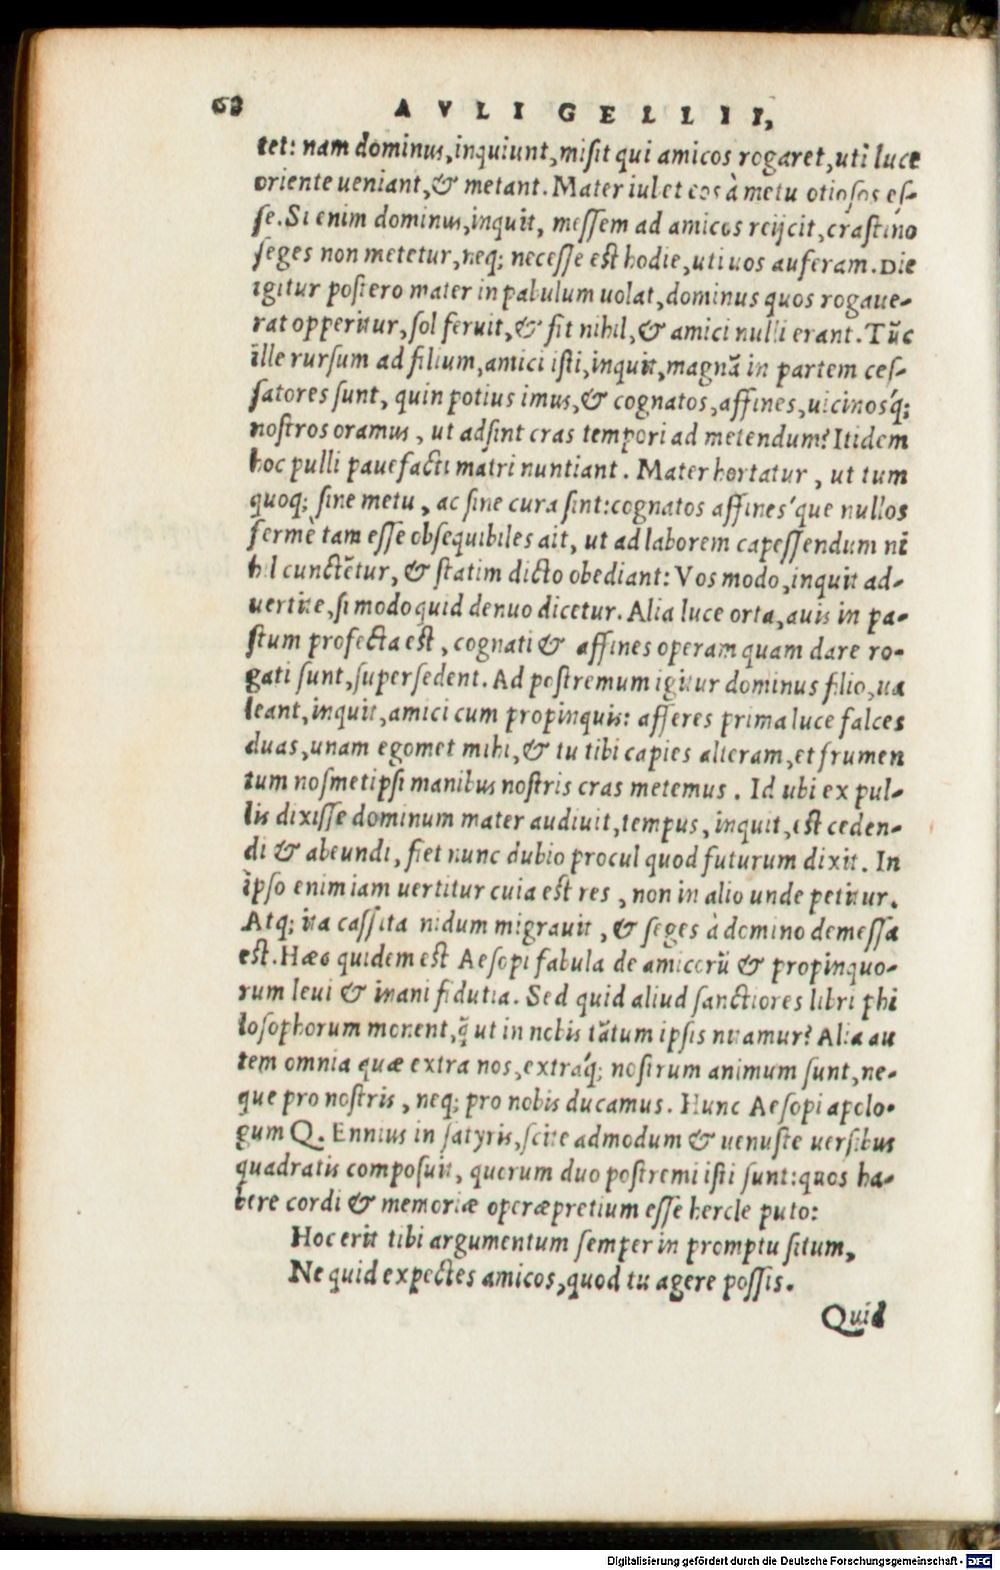 68 AVLI GELLII,
tet: nam dominus, inquiunt, misit qui amicos rogaret, uti luce
oriente ueniant, & metant. Mater iubet eos à metu otiosos es-
se. Si enim dominus, inquit, messem ad amicos reijcit, crastino
seges non metetur, neq; necesse est hodie, uti uos auferam. Die
igitur postero mater in pabulum uolat, dominus quos rogaue-
rat opperitur, sol feruit, & fit nihil, & amici nulli erant. Tũc
ille rursum ad filium, amici isti, inquit, magnã in partem ces-
satores sunt, quin potius imus, & cognatos, affines, uicinosq́;
nostros oramus, ut adsint cras tempori ad metendum? Itidem
hoc pulli pauefacti matri nuntiant. Mater hortatur, ut tum
quoq; sine metu, ac sine cura sint: cognatos affines'que nullos
fermè tam esse obsequibiles ait, ut ad laborem capessendum ni
hil cunctẽtur, & statim dicto obediant: Vos modo, inquit ad-
uertite, si modo quid denuo dicetur. Alia luce orta, auis in pa-
stum profecta est, cognati & affines operam quam dare ro-
gati sunt, supersedent. Ad postremum igitur dominus filio, ua
leant, inquit, amici cum propinquis: afferes prima luce falces
duas, unam egomet mihi, & tu tibi capies alteram, et frumen
tum nosmetipsi manibus nostris cras metemus. Id ubi ex pul-
lis dixisse dominum mater audiuit, tempus, inquit, est ceden-
di & abeundi, fiet nunc dubio procul quod futurum dixit. In
ipso enim iam uertitur cuia est res, non in alio unde petitur.
Atq; ita cassita nidum migrauit, & seges à domino demessa
est. Hæc quidem est Aesopi fabula de amicorũ & propinquo-
rum leui & inani fidutia. Sed quid aliud sanctiores libri phi
losophorum monent, q̃ ut in nobis tãtum ipsis nitamur? Alia au
tem omnia quæ extra nos, extraq́; nostrum animum sunt, ne-
que pro nostris, neq; pro nobis ducamus. Hunc Aesopi apolo-
gum Q. Ennius in satyris, scite admodum & uenuste uersibus
quadratis composuit, quorum duo postremi isti sunt: quos ha-
bere cordi & memoriæ operæpretium esse hercle puto:
Hoc erit tibi argumentum semper in promptu situm,
Ne quid expectes amicos, quod tu agere possis.
Quid
Digitalisierung gefördert durch die Deutsche Forschungsgemeinschaft - DFG